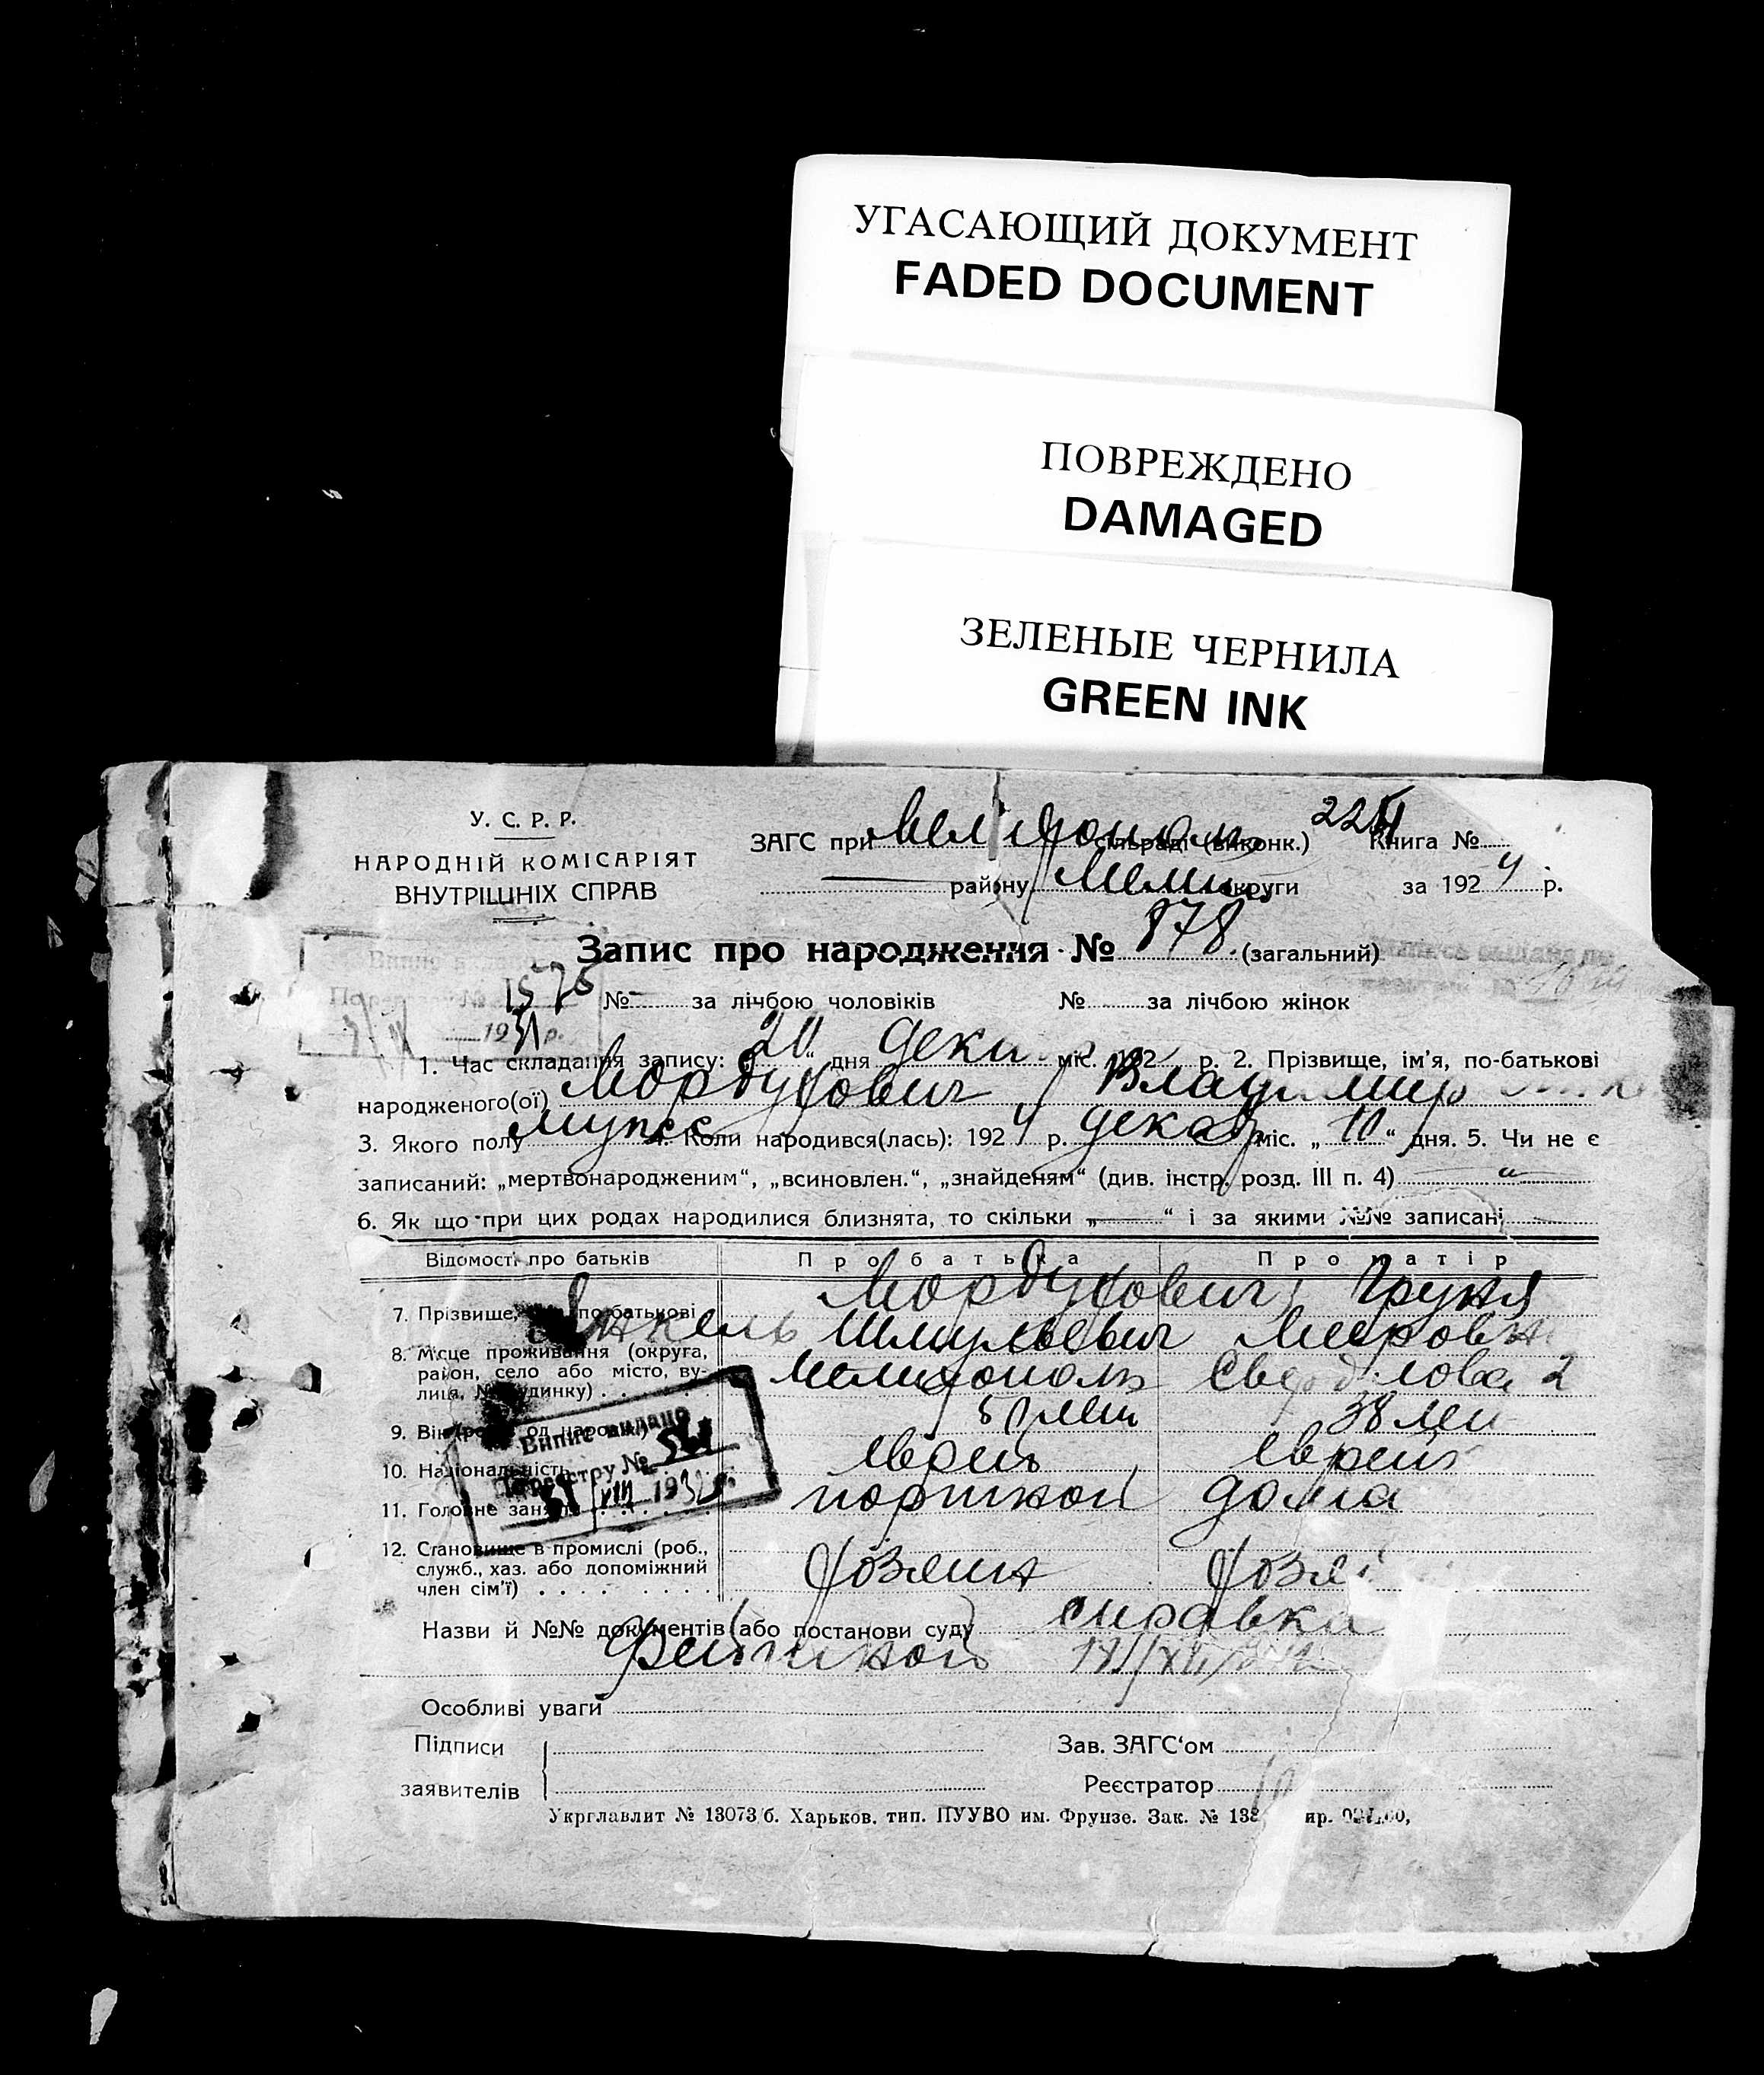 УГАСАЮЩИЙ ДОКУМЕНТ
FADED DOCUMENT
ПОВРЕЖДЕНО
DAMAGED
ЗЕЛЕНЫЕ ЧЕРНИЛА
GREEN INK
У. С. Р. Р.
НАРОДНІЙ КОМІСАРІЯТ
ВНУТРІШНІХ СПРАВ
ЗАГС при Мелітополь сільраді (виконк.) Книга №
району Мели округи за 1924 р.
Запис про народження № 878 (загальний)
Випис видано
1575
1931 р.
№ - за лічбою чоловіків № за лічбою жінок
1. Час складання запису: „20“ дня дека міс. 192 р. 2. Прізвище, ім'я, по-батькові
народженого(ої) Мордухович Владимир
3. Якого полу мужс 4. Коли народився(лась): 1924 р. декабр міс. „10“ дня. 5. Чи не є
записаний: „мертвонародженим“, „всиновлен.“, „знайденям“ (див. інстр. розд. III п. 4) "
6. Як що при цих родах народилися близнята, то скільки „—“ і за якими №№ записані
Відомості про батьків Про батька Про матір
7. Прізвище, по-батькові Мордухович Груня
Янкель Шмульевич Мееровна
8. Місце проживання (округа, район, село або місто, вулиця, № будинку) Мелитополь Свердлова 2
9. Вік од народж 38 лет
10. Національність еврей еврей
11. Головне заняття портной дома
12. Становище в промислі (роб., служб., хаз. або допоміжний член сім'ї) хозяин
Випис видано
По реєстру №
31 VIII 193
Назви й №№ документів (або постанови суду) справка
Особливі уваги
Підписи заявителів
Зав. ЗАГС'ом
Реєстратор
Укрглавлит № 13073/б. Харьков, тип. ПУУВО им. Фрунзе. Зак. №